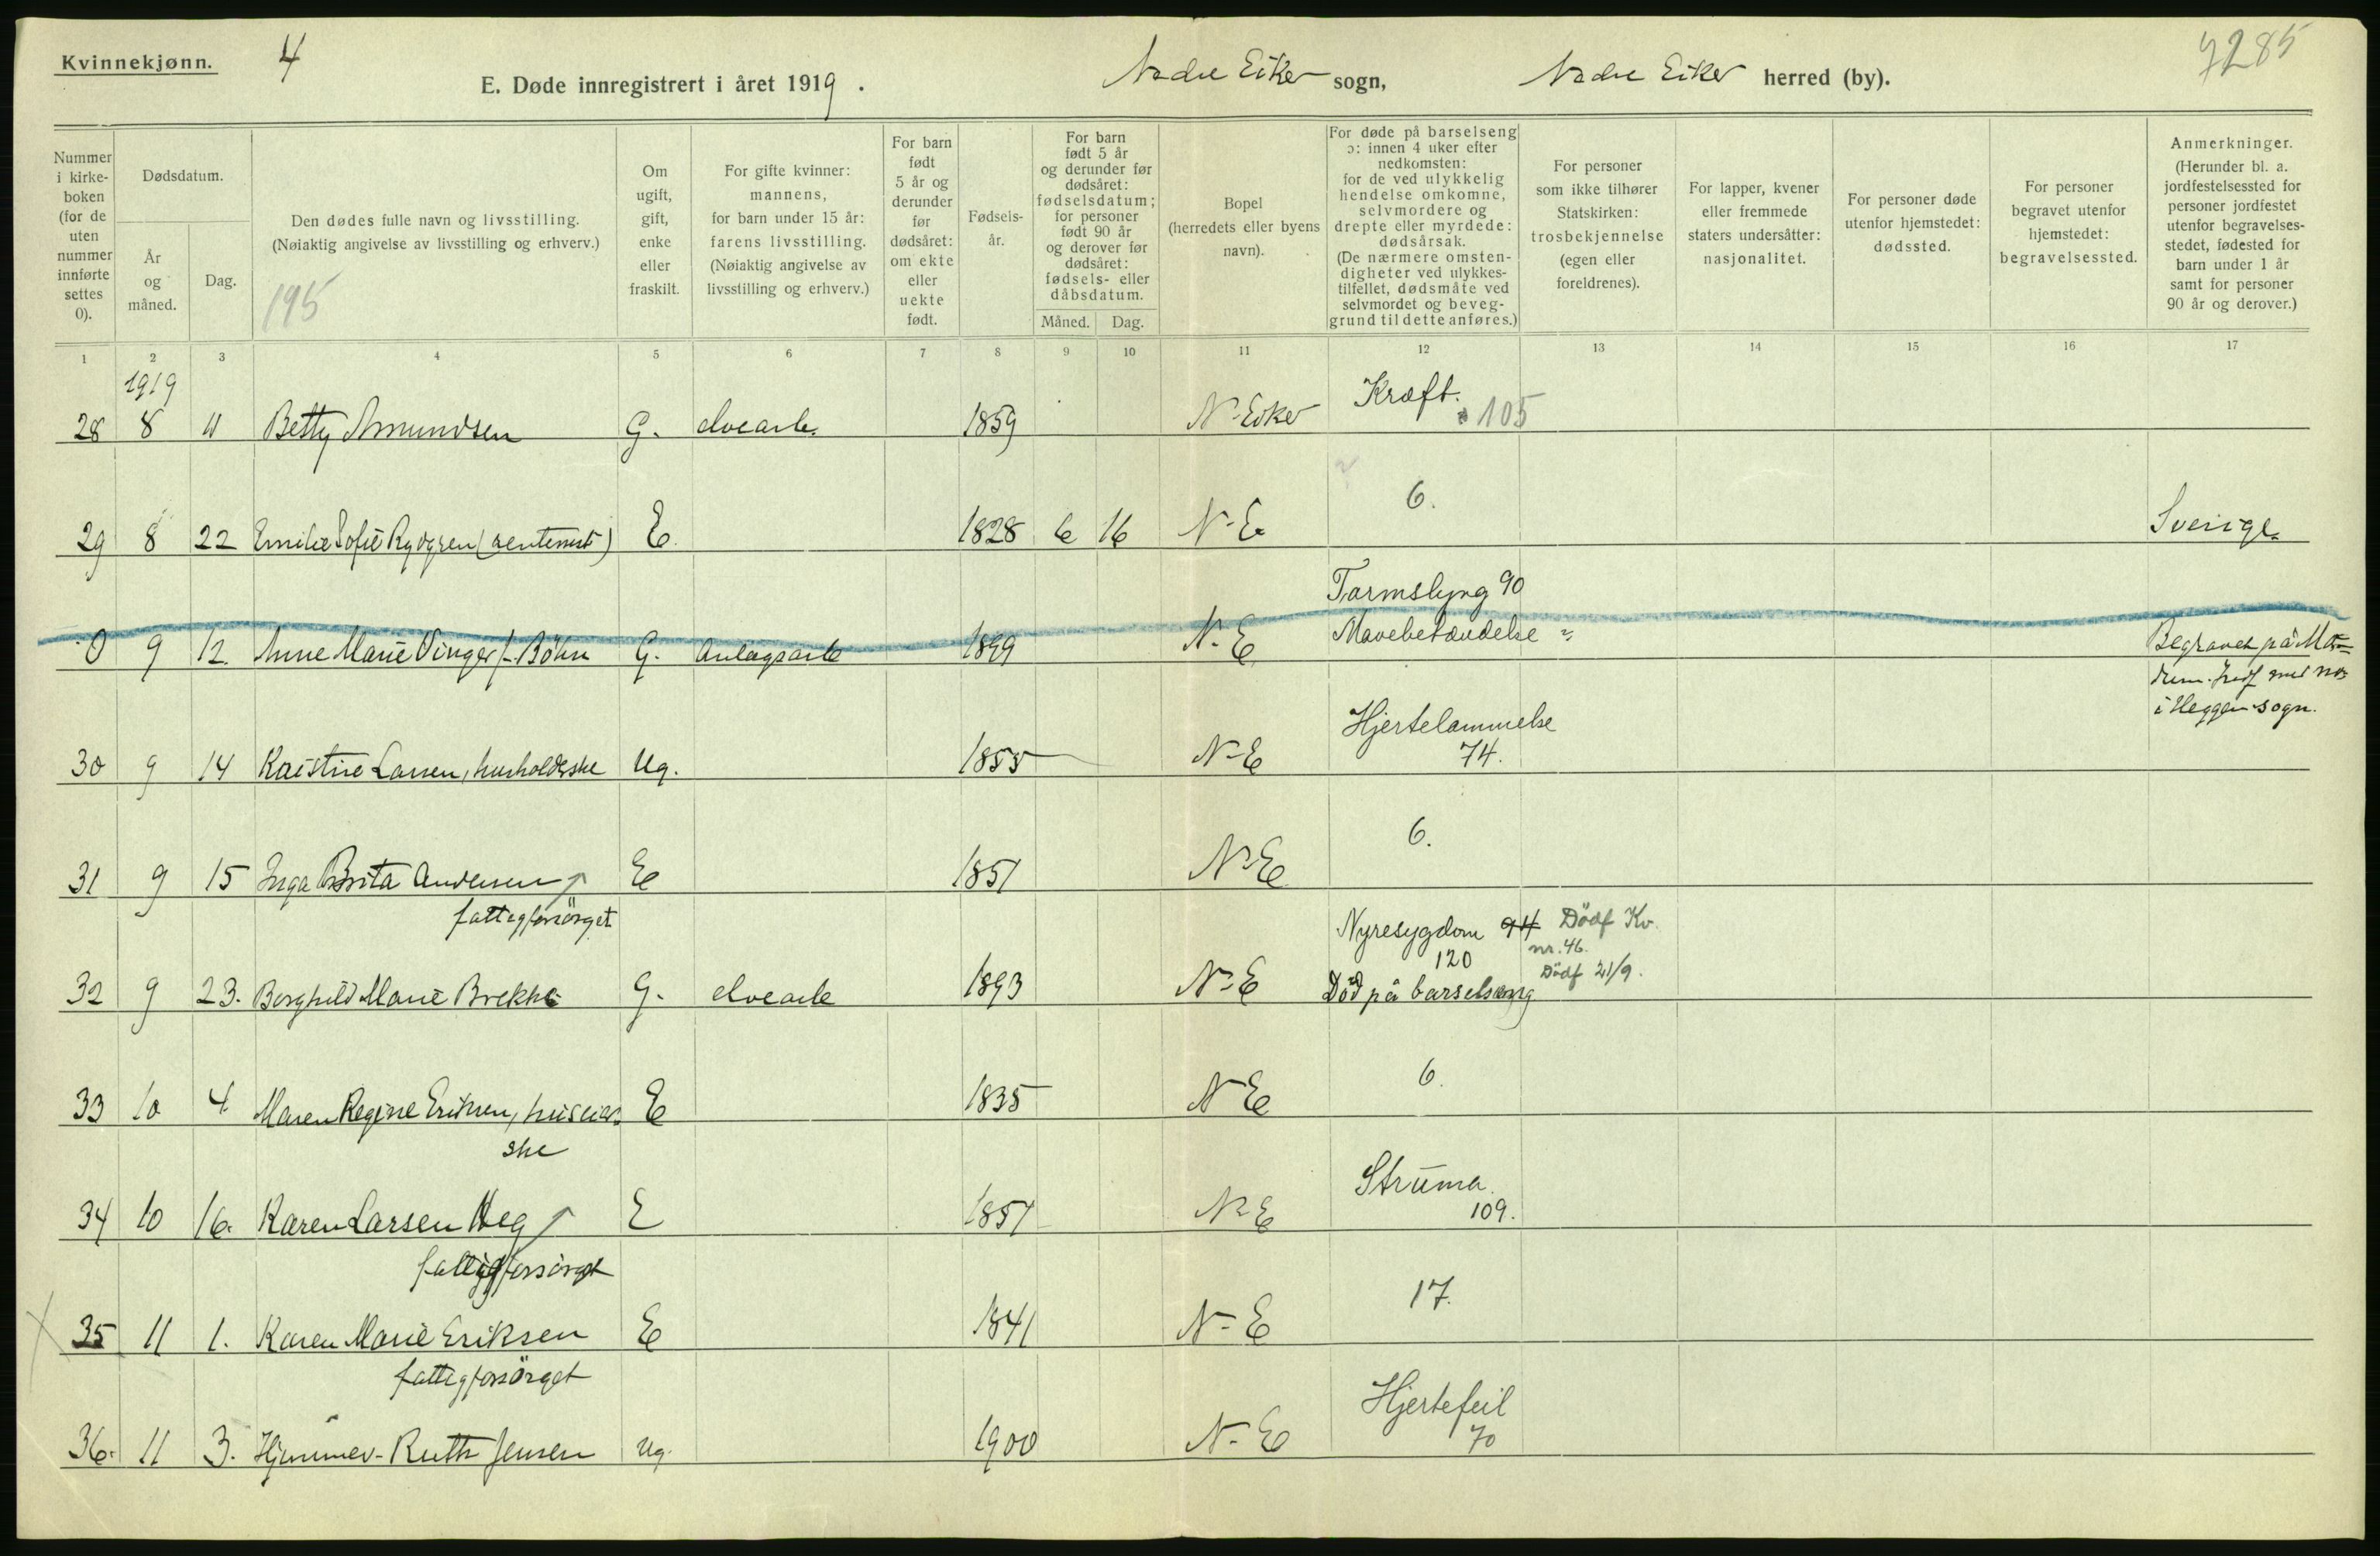 Kvinnekjønn.
4
E. Døde innregistrert i året 1919.
Nedre Eiker sogn,
Nedre Eiker herred (by).
7285
Nummer i kirke-boken (for de uten nummer innførte settes 0).
Dødsdatum.
År og måned.
Dag.
Den dødes fulle navn og livsstilling.
(Nøiaktig angivelse av livsstilling og erhverv.)
195
Om ugift, gift, enke eller fraskilt.
For gifte kvinner: mannens, for barn under 15 år: farens livsstilling. (Nøiaktig angivelse av livsstilling og erhverv.)
For barn født 5 år og derunder før dødsåret: om ekte eller uekte født.
Fødsels-år.
For barn født 5 år og derunder før dødsåret: fødselsdatum; for personer født 90 år og derover før dødsåret: fødsels- eller dåbsdatum.
Måned. Dag.
Bopel (herredets eller byens navn).
For døde på barselseng ɔ: innen 4 uker efter nedkomsten: for de ved ulykkelig hendelse omkomne, selvmordere og drepte eller myrdede: dødsårsak. (De nærmere omsten-digheter ved ulykkes-tilfellet, dødsmåte ved selvmordet og beveg-grund til dette anføres.)
For personer som ikke tilhører Statskirken: trosbekjennelse (egen eller foreldrenes).
For lapper, kvener eller fremmede staters undersåtter: nasjonalitet.
For personer døde utenfor hjemstedet: dødssted.
For personer begravet utenfor hjemstedet: begravelsessted.
Anmerkninger. (Herunder bl. a. jordfestelsessted for personer jordfestet utenfor begravelses-stedet, fødested for barn under 1 år samt for personer 90 år og derover.)
1 2 3 4 5 6 7 8 9 10 11 12 13 14 15 16 17
1919
28 8 11 Betty Amundsen G. elvearb. 1859 N-Eiker Kræft. 105
29 8 22 Emilie Sofie Rydgren (rentenist) E. 1828 6 16 N-E 6. Sverige.
Tarmslyng 90
0 9 12. Anne Marie Vinger f. Böhn G. Anlægsarb 1899 N-E Mavebetændelse
Begravet på Mo-
dum. Jordf med no
i Heggen sogn.
30 9 14 Kristine Larsen, husholderske Ug. 1855 N-E Hjertelammelse 74.
31 9 15 Inga Brita Andersen E 1851 N-E 6.
fattigforsörget
32 9 23. Borghild Marie Brekke G. elvearb 1893 N-E Nyresygdom 94 120 Död på barselseng
Dödf Kv. nr. 46. Dödf 21/9.
33 10 4. Maren Regine Eriksen, huseier- E 1835 N-E 6.
ske
34 10 16. Karen Larsen Heg E 1851 N-E Struma. 109.
fattigforsörget
35 11 1. Karen Marie Eriksen E 1841 N-E 17.
fattigforsörget
36. 11 3. Ruth Jensen Ug. 1900 N-E Hjertefeil 70